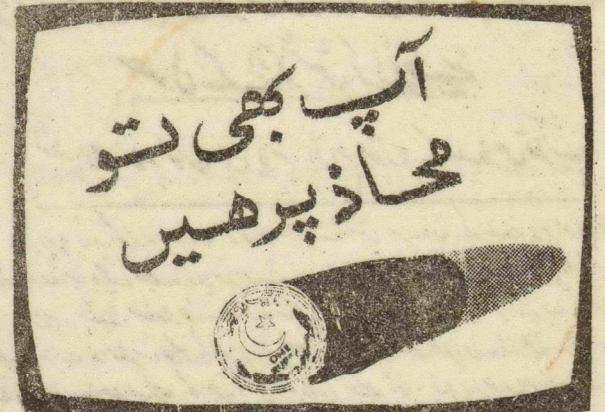 آپ بھی تو
محاذ پر ھیں